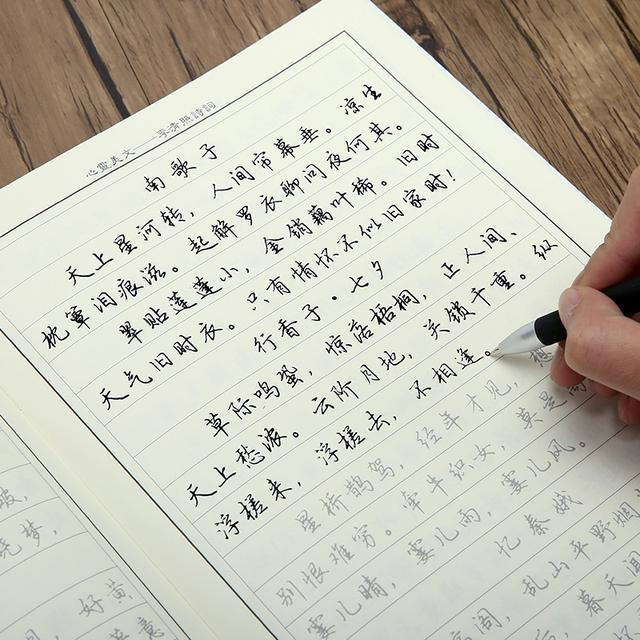 心靈美文——李清照詩詞
南歌子
天上星河转，人间帘幕垂。凉生
枕簟泪痕滋。起解罗衣聊问夜何其。
翠贴莲蓬小，金销藕叶稀。旧时
天气旧时衣。只有情怀不似旧家时！
行香子·七夕
草际鸣蛩，惊落梧桐，正人间、
天上愁浓。云阶月地，关锁千重。纵
浮槎来，浮槎去，不相逢。
星桥鹊驾，经年才见，想
别恨难穷。牵牛织女，莫是离
霎儿晴，霎儿雨，霎儿风。
忆秦娥
高阁，乱山平野烟
暮天闻
晓梦，
好黄
意